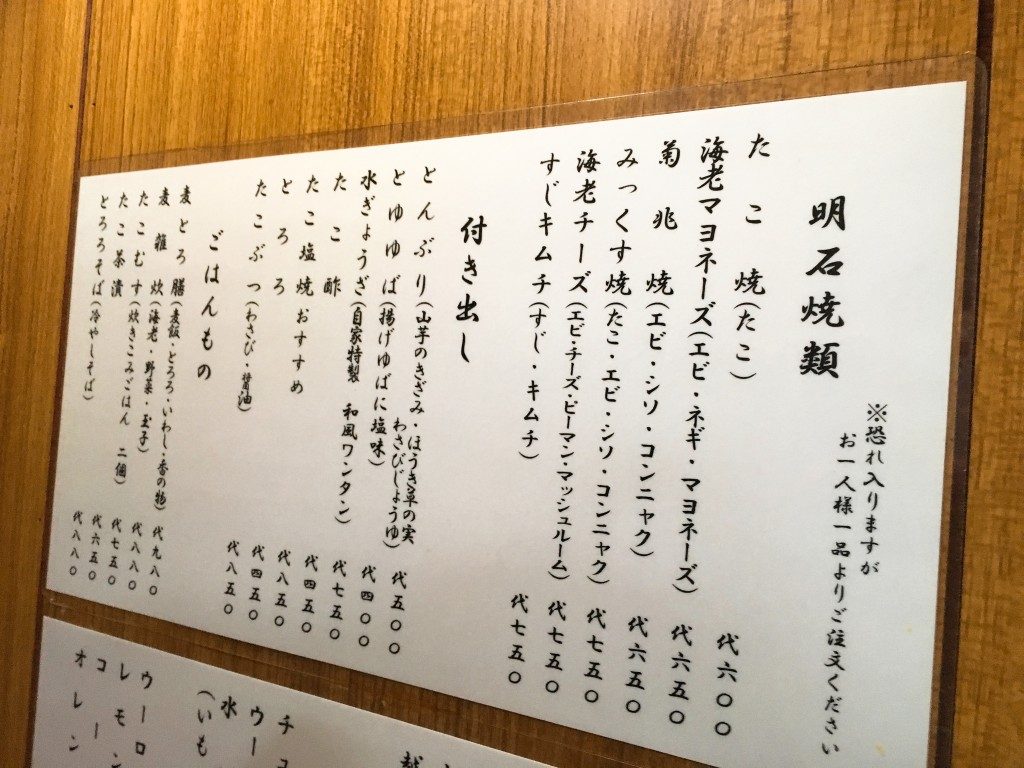 明石焼類
※恐れ入りますが
お一人様一品よりご注文ください
たこ焼(たこ) 代六〇〇
海老マヨネーズ(エビ・ネギ・マヨネーズ) 代六五〇
菊兆焼(エビ・シソ・コンニャク) 代六五〇
みっくす焼(たこ・エビ・シソ・コンニャク) 代七五〇
海老チーズ(エビ・チーズ・ピーマン・マッシュルーム) 代七五〇
すじキムチ(すじ・キムチ) 代七五〇
付き出し
とんぶり(山芋のきざみ・ほうき草の実
わさびじょうゆ) 代五〇〇
とゆゆば(揚げゆばに塩味) 代四〇〇
水ぎょうざ(自家特製 和風ワンタン) 代七五〇
たこ酢 代四五〇
たこ塩焼おすすめ 代八五〇
とろろ 代四五〇
たこぶつ(わさび・醤油) 代八五〇
ごはんもの
麦とろ膳(麦飯・とろろ・いわし・香の物) 代九八〇
麦雑炊(海老・野菜・玉子) 代八八〇
たこむす(炊きこみごはん 二個) 代七五〇
たこ茶漬 代六五〇
とろろそば(冷やしそば) 代八八〇
チュ
ウー
水
(いも
ウーロ
レモン
コー
オレン